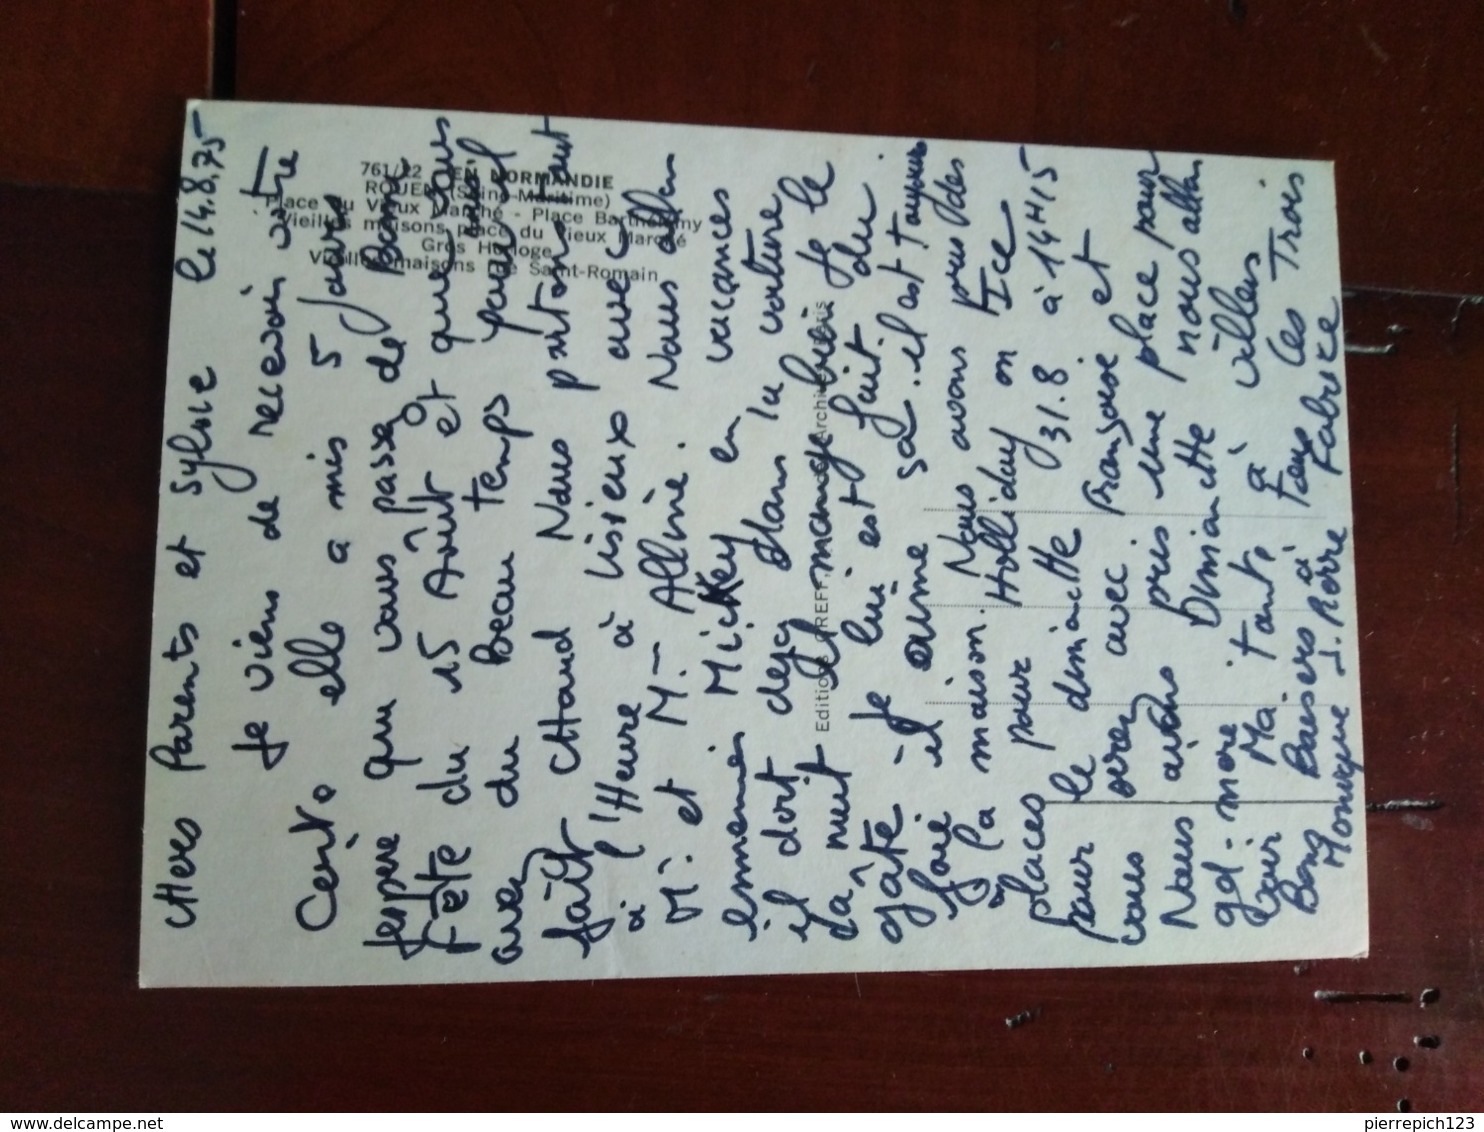 Chers Parents et Sylvie le 14.8.75
Je viens de recevoir votre
Carte elle a mis 5 Jours
J'espère que vous passez de Bonne
Fête du 15 Aout et que vous
avez du Beau temps
fait chaud Nous partons tout
à l'Heure à Lisieux avec
M. et M. Alliné. Nous allon
emmener Mickey en vacances
il dort deja dans la voiture
la nuit et mange bien Je le
gâte Je lui est fait du
foie il aime sa. il est toujours
à la maison. Nous avons pris des
places pour Holliday on Ice
pour le dimanche 31.8 à 14H15
vous serez avec Françoise et
Nous avons pris une place pour
gd-mère Dimanche nous allon
voir Ma tante à Villers
Bons Baisers à Tous Les Trois
Monique J. Pierre Fabrice
761/22 EN NORMANDIE
ROUEN (Seine-Maritime)
Place du Vieux Marché - Place Barthélemy
Vieilles maisons place du Vieux Marché
Gros Horloge
Vieilles maisons rue Saint-Romain
Editions GREFF,
www.delcampe.net
pierrepich123